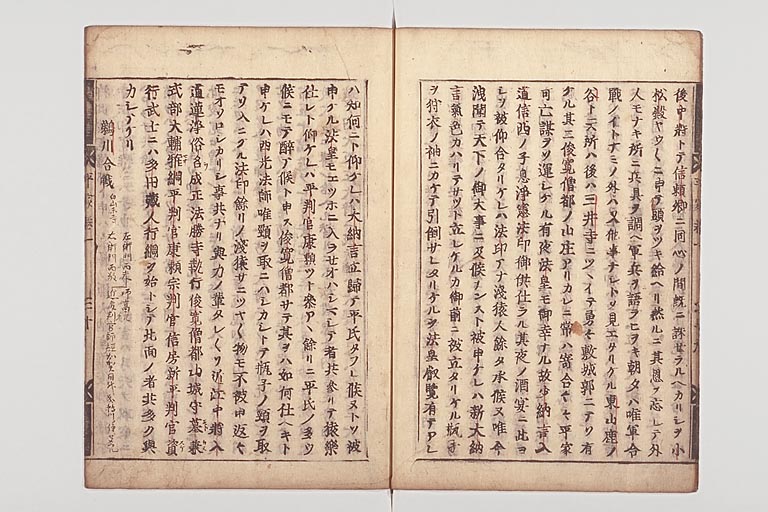 後中将トテ信頼卿ニ同心ノ間既ニ誅セラルヘカリシヲ小
松殿ヤウ〱ニ申テ頸ヲツキ給ヘリ然ルニ其恩ヲ忘レテ外
人モナキ所ニ兵具ヲ調ヘ軍兵ヲ語ラヒヲキ朝夕ハ唯軍合
戦ノイトナミノ外ハ又他事ナシトソ見エタリケル東山鹿ノ
谷ト云所ハ後ハ三井寺ニツヽイテ勇々敷城郭ニテソ有
ケル其ニ俊寛僧都ノ山庄アリカレニ常ハ寄合〱平家
可亡謀ヲソ運シケル有夜法皇モ御幸ナル故少納言入
道信西ノ子息浄憲法印御供仕ラル其夜ノ酒宴ニ此ヨ
シヲ被仰合タリケレハ法印アナ浅猿人餘タ承候又唯今
洩聞テ天下ノ御大事ニ及候ナンスト被申ケレハ新大納
言氣色カハリテサツト立レケルカ御前ニ被立タリケル瓶子
ヲ狩衣ノ袖ニカケテ引倒サレタリケルヲ法皇叡覧有テアレ
ハ如何ニト仰ケレハ大納言立歸テ平氏タフレ候ヌトソ被
申ケル法皇モエツホニ入ラセオハシマシテ者共参リテ猿樂
仕レト仰ケレハ平判官康頼ツト参アヽ餘リニ平氏ノ多ウ
候ニモテ醉テ候ト申ス俊寛僧都サテ其ヲハ如何仕ヘキト
申ケレハ西光法師唯頸ヲ取ニハシカシトテ瓶子ノ頸ヲ取
テソ入ニケル法印餘リノ浅猿サニツヤ〱物モ不被申返々
モオソロシカリシ事共ナリ與力ノ輩タレ〱ソ近江中将入
道蓮浄俗名成正法勝寺執行俊寛僧都山城守基兼
式部大輔雅綱平判官康頼宗判官信房新平判官資
行武士ニハ多田藏人行綱ヲ始トシテ此面ノ者共多ク與
カシテケリ
鵜川合戦
平家巻一
三十